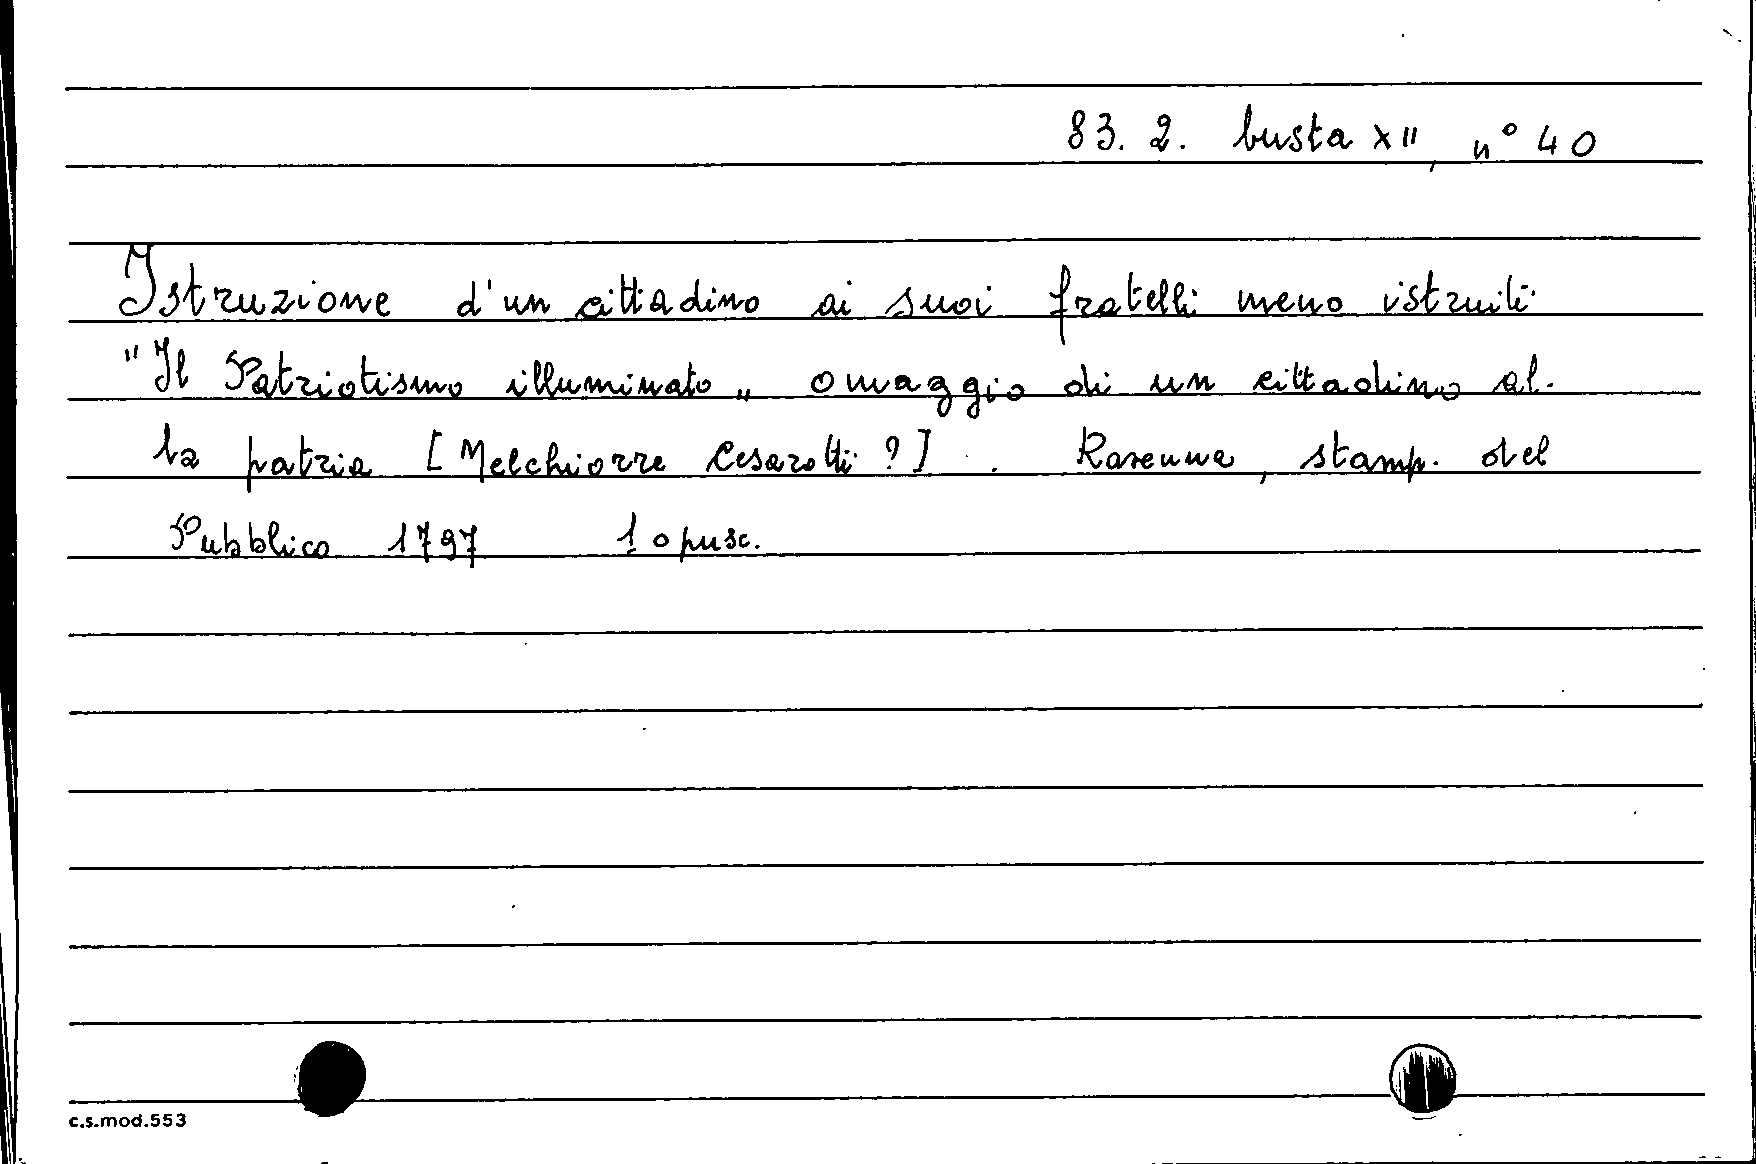 83. 2. busta XII, n° 40
Istruzione d'un cittadino ai suoi fratelli meno istruiti
"Il Patriotismo illuminato„ omaggio di un cittadino al-
la patria [Melchiorre Cesarotti?]. Ravenna, stamp. del
Pubblico 1797 1 opusc.
c.s.mod.553